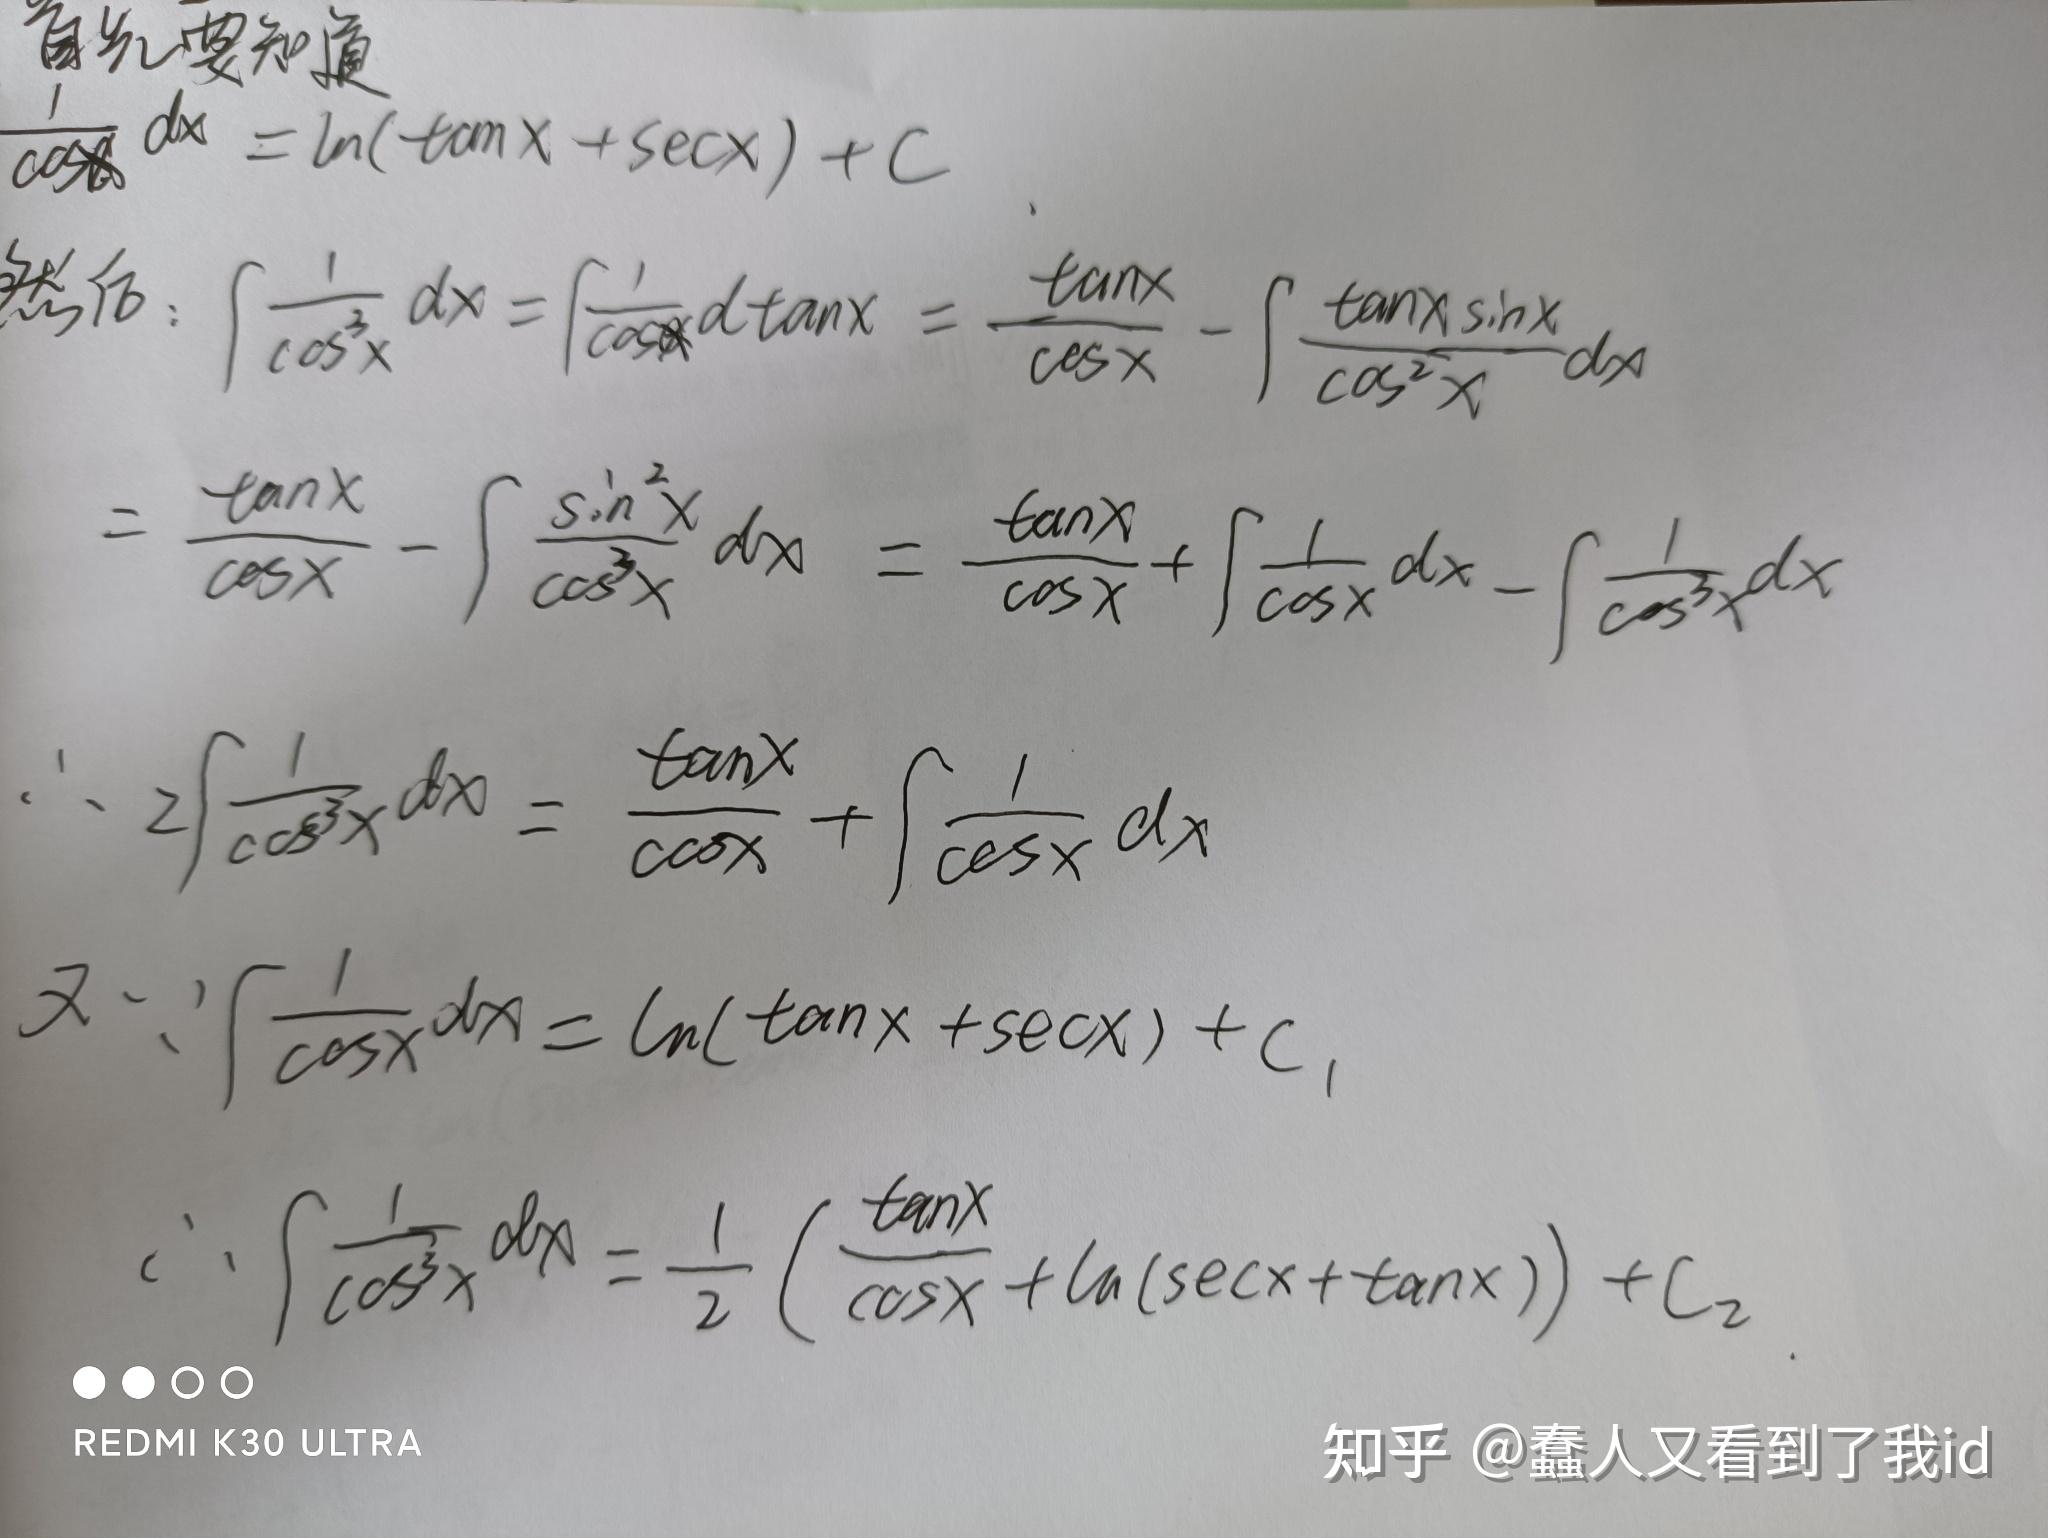 首先要知道
1/cosx dx = ln(tanx + secx) + C
然后: ∫ 1/cos³x dx = ∫ 1/cosx d tanx = tanx/cosx - ∫ tanx sinx/cos²x dx
= tanx/cosx - ∫ sin²x/cos³x dx = tanx/cosx + ∫ 1/cosx dx - ∫ 1/cos³x dx
∴ 2∫ 1/cos³x dx = tanx/cosx + ∫ 1/cosx dx
又∵ ∫ 1/cosx dx = ln(tanx + secx) + C₁
∴ ∫ 1/cos³x dx = 1/2 (tanx/cosx + ln(secx + tanx)) + C₂
REDMI K30 ULTRA
知乎 @蠢人又看到了我id